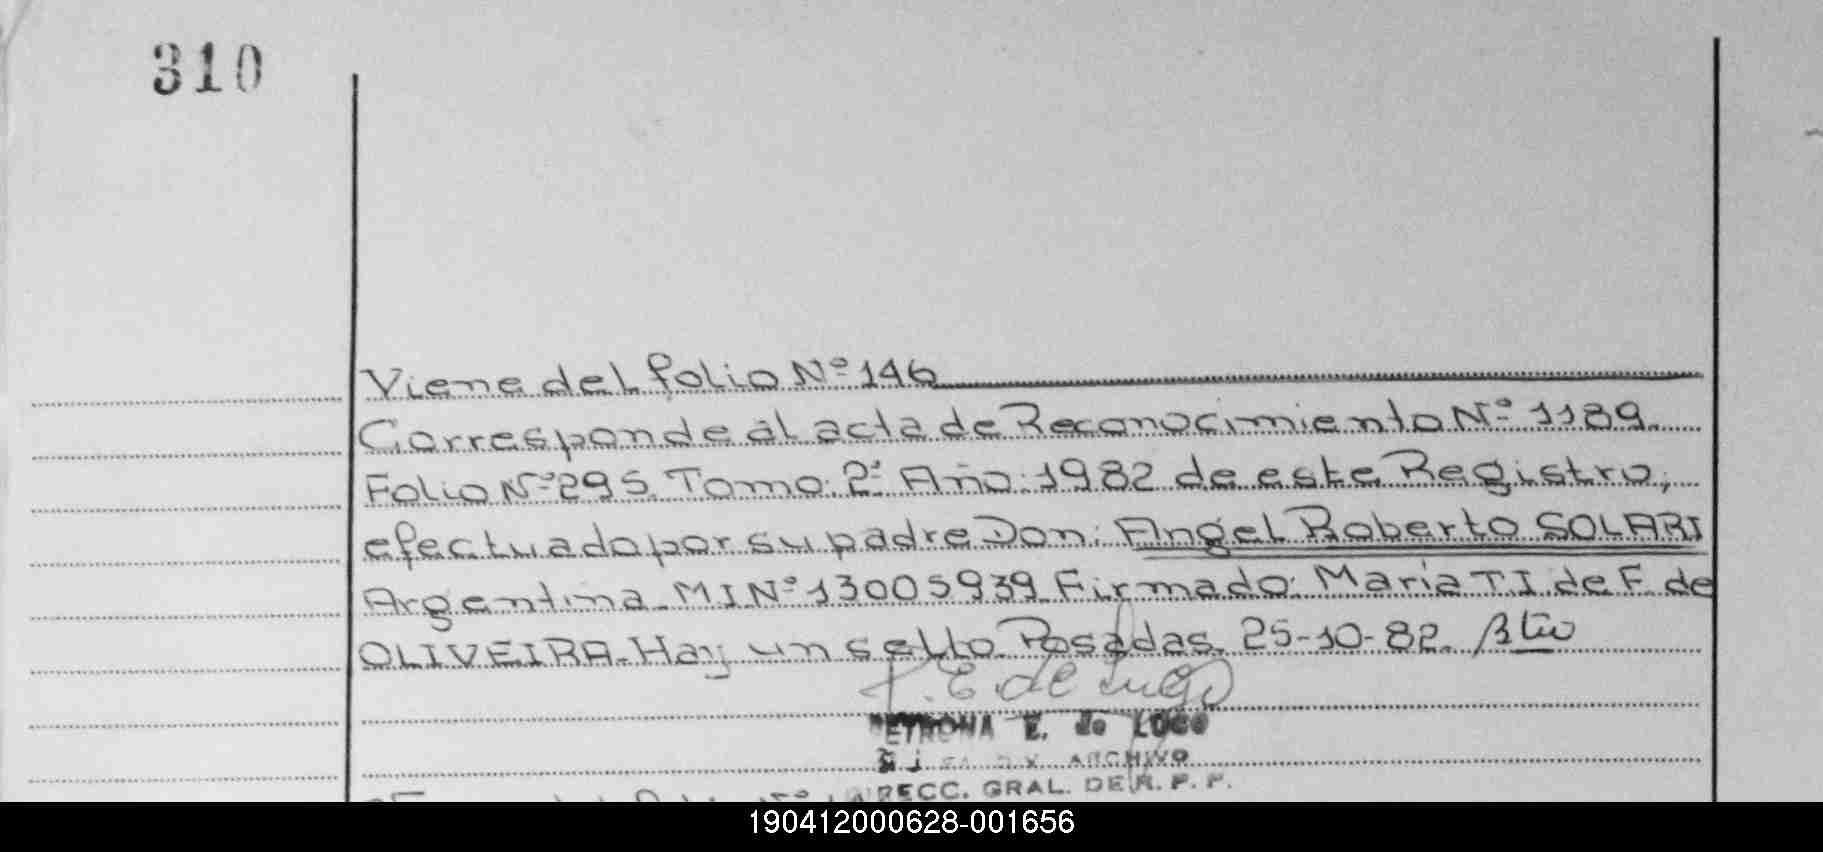 310
Viene del folio Nº 146
Corresponde al acta de Reconocimiento Nº 1189.
Folio Nº 295. Tomo: 2º Año: 1982 de este Registro;
efectuado por su padre Don: Angel Roberto SOLARI
Argentina. MI Nº 13005939. Firmado: María T. I. de F. de
OLIVEIRA. Hay un sello. Posadas. 25-10-82.
P. E. de Lugo
PETRONA E. de LUGO
ARCHIVO
DIRECC. GRAL. DE R. P. P.
190412000628-001656